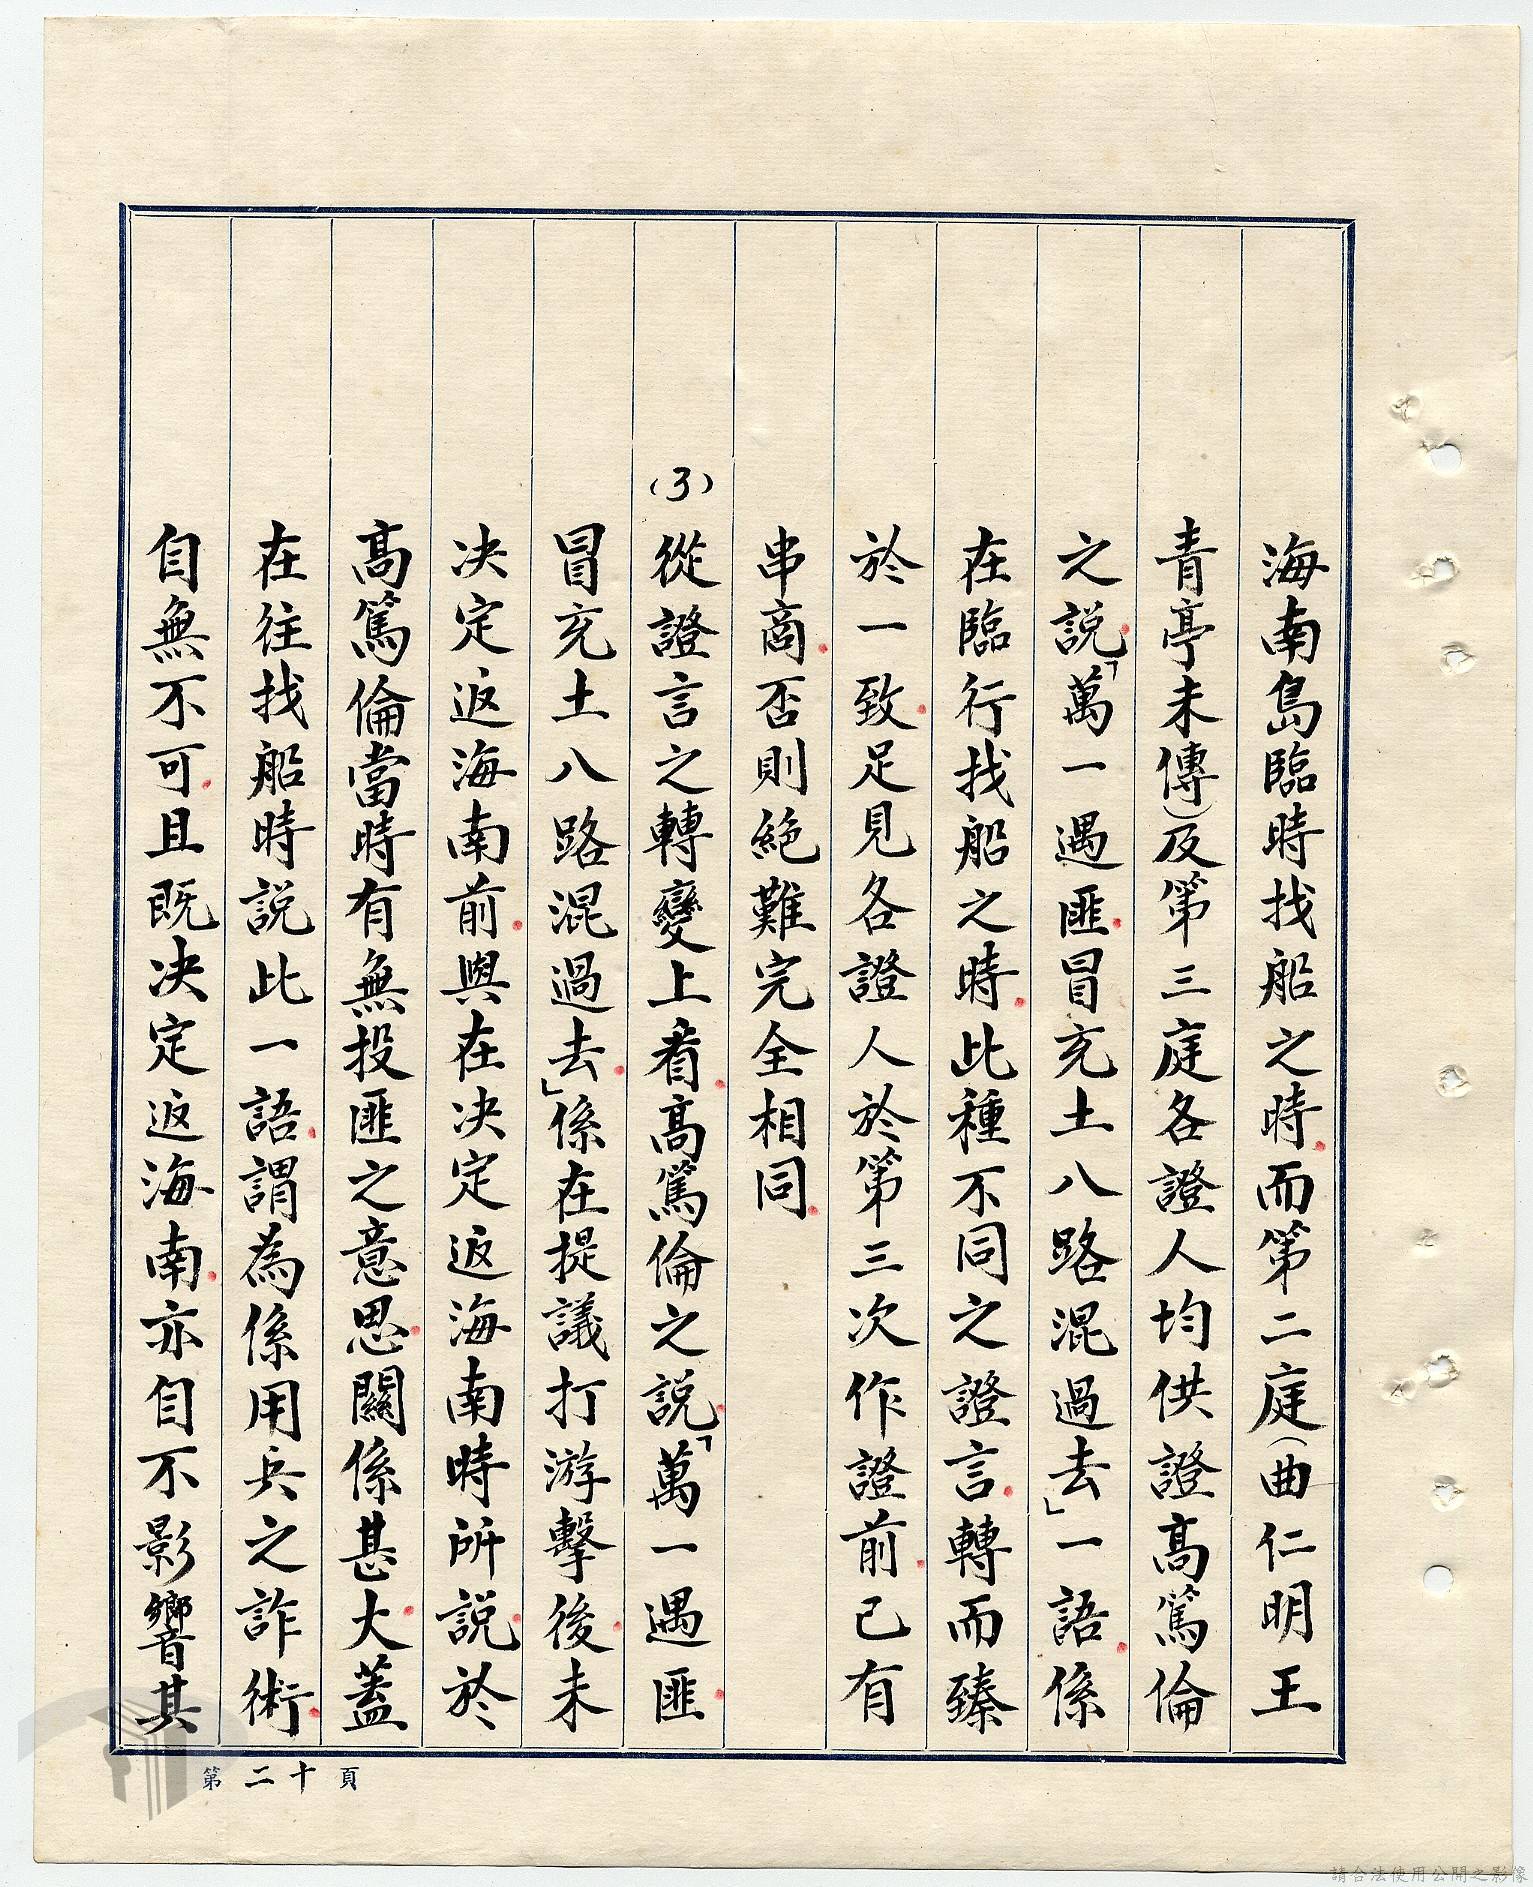 海南島臨時找船之時．而第二庭（曲仁明王
青亭未傳）及第三庭各證人均供證高篤倫
之說．「萬一遇匪．冒充土八路混過去」一語．係
在臨行找船之時．此種不同之證言．轉而臻
於一致．足見各證人於第三次作證前．已有
串商．否則絕難完全相同．
(3)從證言之轉變上看．高篤倫之說．「萬一遇匪．
冒充土八路混過去．」係在提議打游擊後．未
决定返海南前．與在决定返海南時所說．於
高篤倫當時有無投匪之意思．關係甚大．蓋
在往找船時說此一語．謂為係用兵之詐術．
自無不可．且既决定返海南．亦自不影響其
第二十頁
請合法使用公開之影像